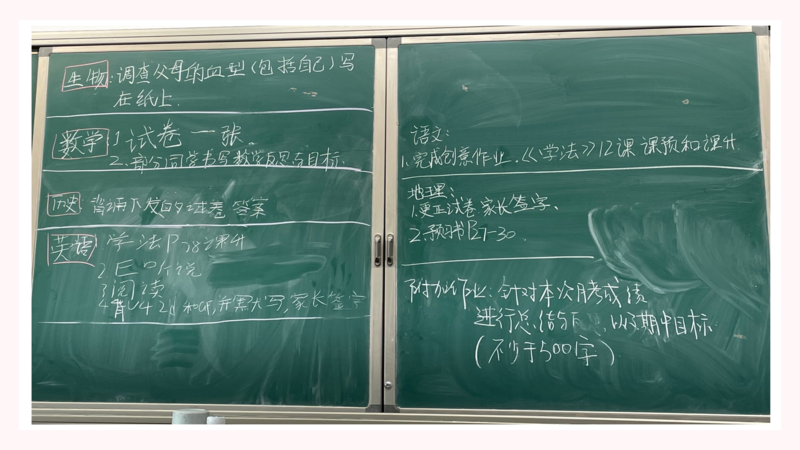 生物:调查父母的血型(包括自己)写
在纸上.
数学:1.试卷一张.
2.部分同学书写数学反思与目标.
历史:背诵下发的试卷答案
英语:学法P78课外
2.巨口听说
3.阅读
4.背U4 2d 和GF,并默写,家长签字
语文:
1.完成创意作业.《学法》12课 课预和课外
地理:
1.更正试卷家长签字.
2.预习书P27-30.
附加作业:针对本次月考成绩
进行总结与 以及期中目标
(不少于500字)